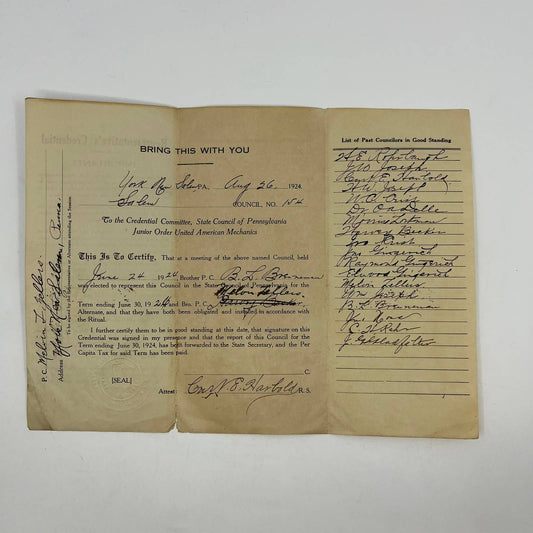 BRING THIS WITH YOU
York New Salem Aug 26, 1924
Salem COUNCIL, NO. 154
To the Credential Committee, State Council of Pennsylvania
Junior Order United American Mechanics
This Is To Certify, That at a meeting of the above named Council, held
June 24 1924 Brother P. C. B. L. Brenneman
was elected to represent this Council in the State Council of Pennsylvania for the
Melvin Sellers
Term ending June 30, 1926 and Bro. P. C.
Alternate, and that they have been obligated and instructed in accordance with
the Ritual.
I further certify them to be in good standing at this date, that signature on this
Credential was signed in my presence and that the report of this Council for the
Term ending June 30, 1924, has been forwarded to the State Secretary, and the Per
Capita Tax for said Term has been paid.
C.
[SEAL]
Attest: E. Harbold R.S.
P. C. Melvin L. Sellers
Address York New Salem, Penna.
List of Past Councilors in Good Standing
J W Joseph
E Harbold
W Joseph
W C
Dr
Harvey Becker
Jno Rush
Jno Gingerich
Raymond Gingerich
Elwood Gingerich
Melvin Sellers
Wm Joseph
B L Brenneman
C H